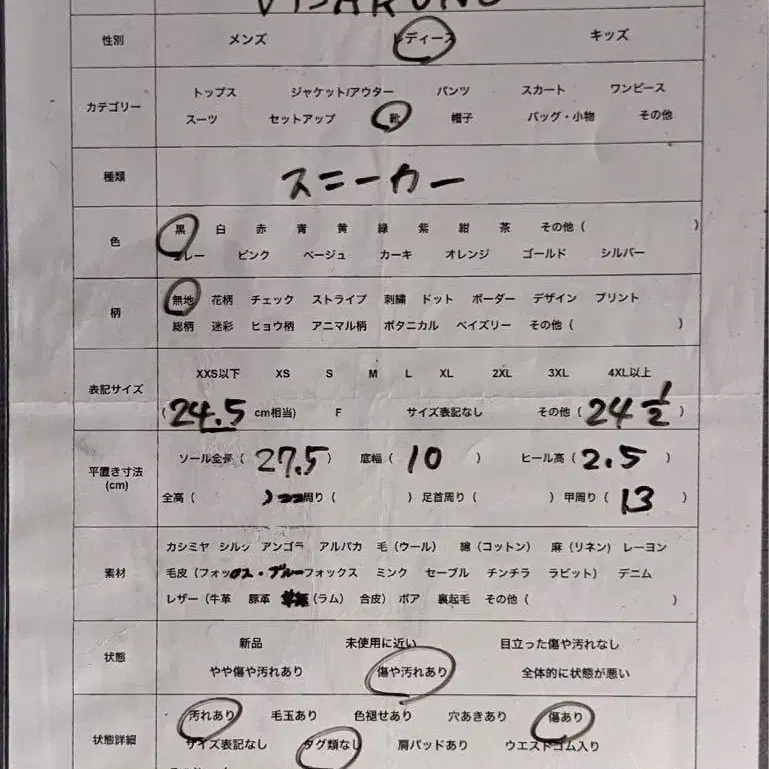 性別 メンズ レディース キッズ
カテゴリー
トップス ジャケット/アウター パンツ スカート ワンピース
スーツ セットアップ 靴 帽子 バッグ・小物 その他
種類 スニーカー
色
黒 白 赤 青 黄 緑 紫 紺 茶 その他 ( )
グレー ピンク ベージュ カーキ オレンジ ゴールド シルバー
柄
無地 花柄 チェック ストライプ 刺繍 ドット ボーダー デザイン プリント
総柄 迷彩 ヒョウ柄 アニマル柄 ボタニカル ペイズリー その他 ( )
表記サイズ
XXS以下 XS S M L XL 2XL 3XL 4XL以上
( 24.5 cm相当) F サイズ表記なし その他 ( 24 1/2 )
平置き寸法 (cm)
ソール全長 ( 27.5 ) 底幅 ( 10 ) ヒール高 ( 2.5 )
全高 ( ) 周り ( ) 足首周り ( ) 甲周り ( 13 )
素材
カシミヤ シルク アンゴラ アルパカ 毛 (ウール) 綿 (コットン) 麻 (リネン) レーヨン
毛皮 (フォックス・ブルーフォックス ミンク セーブル チンチラ ラビット) デニム
レザー (牛革 豚革 (ラム) 合皮) ボア 裏起毛 その他 ( )
状態
新品 未使用に近い 目立った傷や汚れなし
やや傷や汚れあり 傷や汚れあり 全体的に状態が悪い
状態詳細
汚れあり 毛玉あり 色褪せあり 穴あきあり 傷あり
サイズ表記なし タグ類なし 肩パッドあり ウエストゴム入り